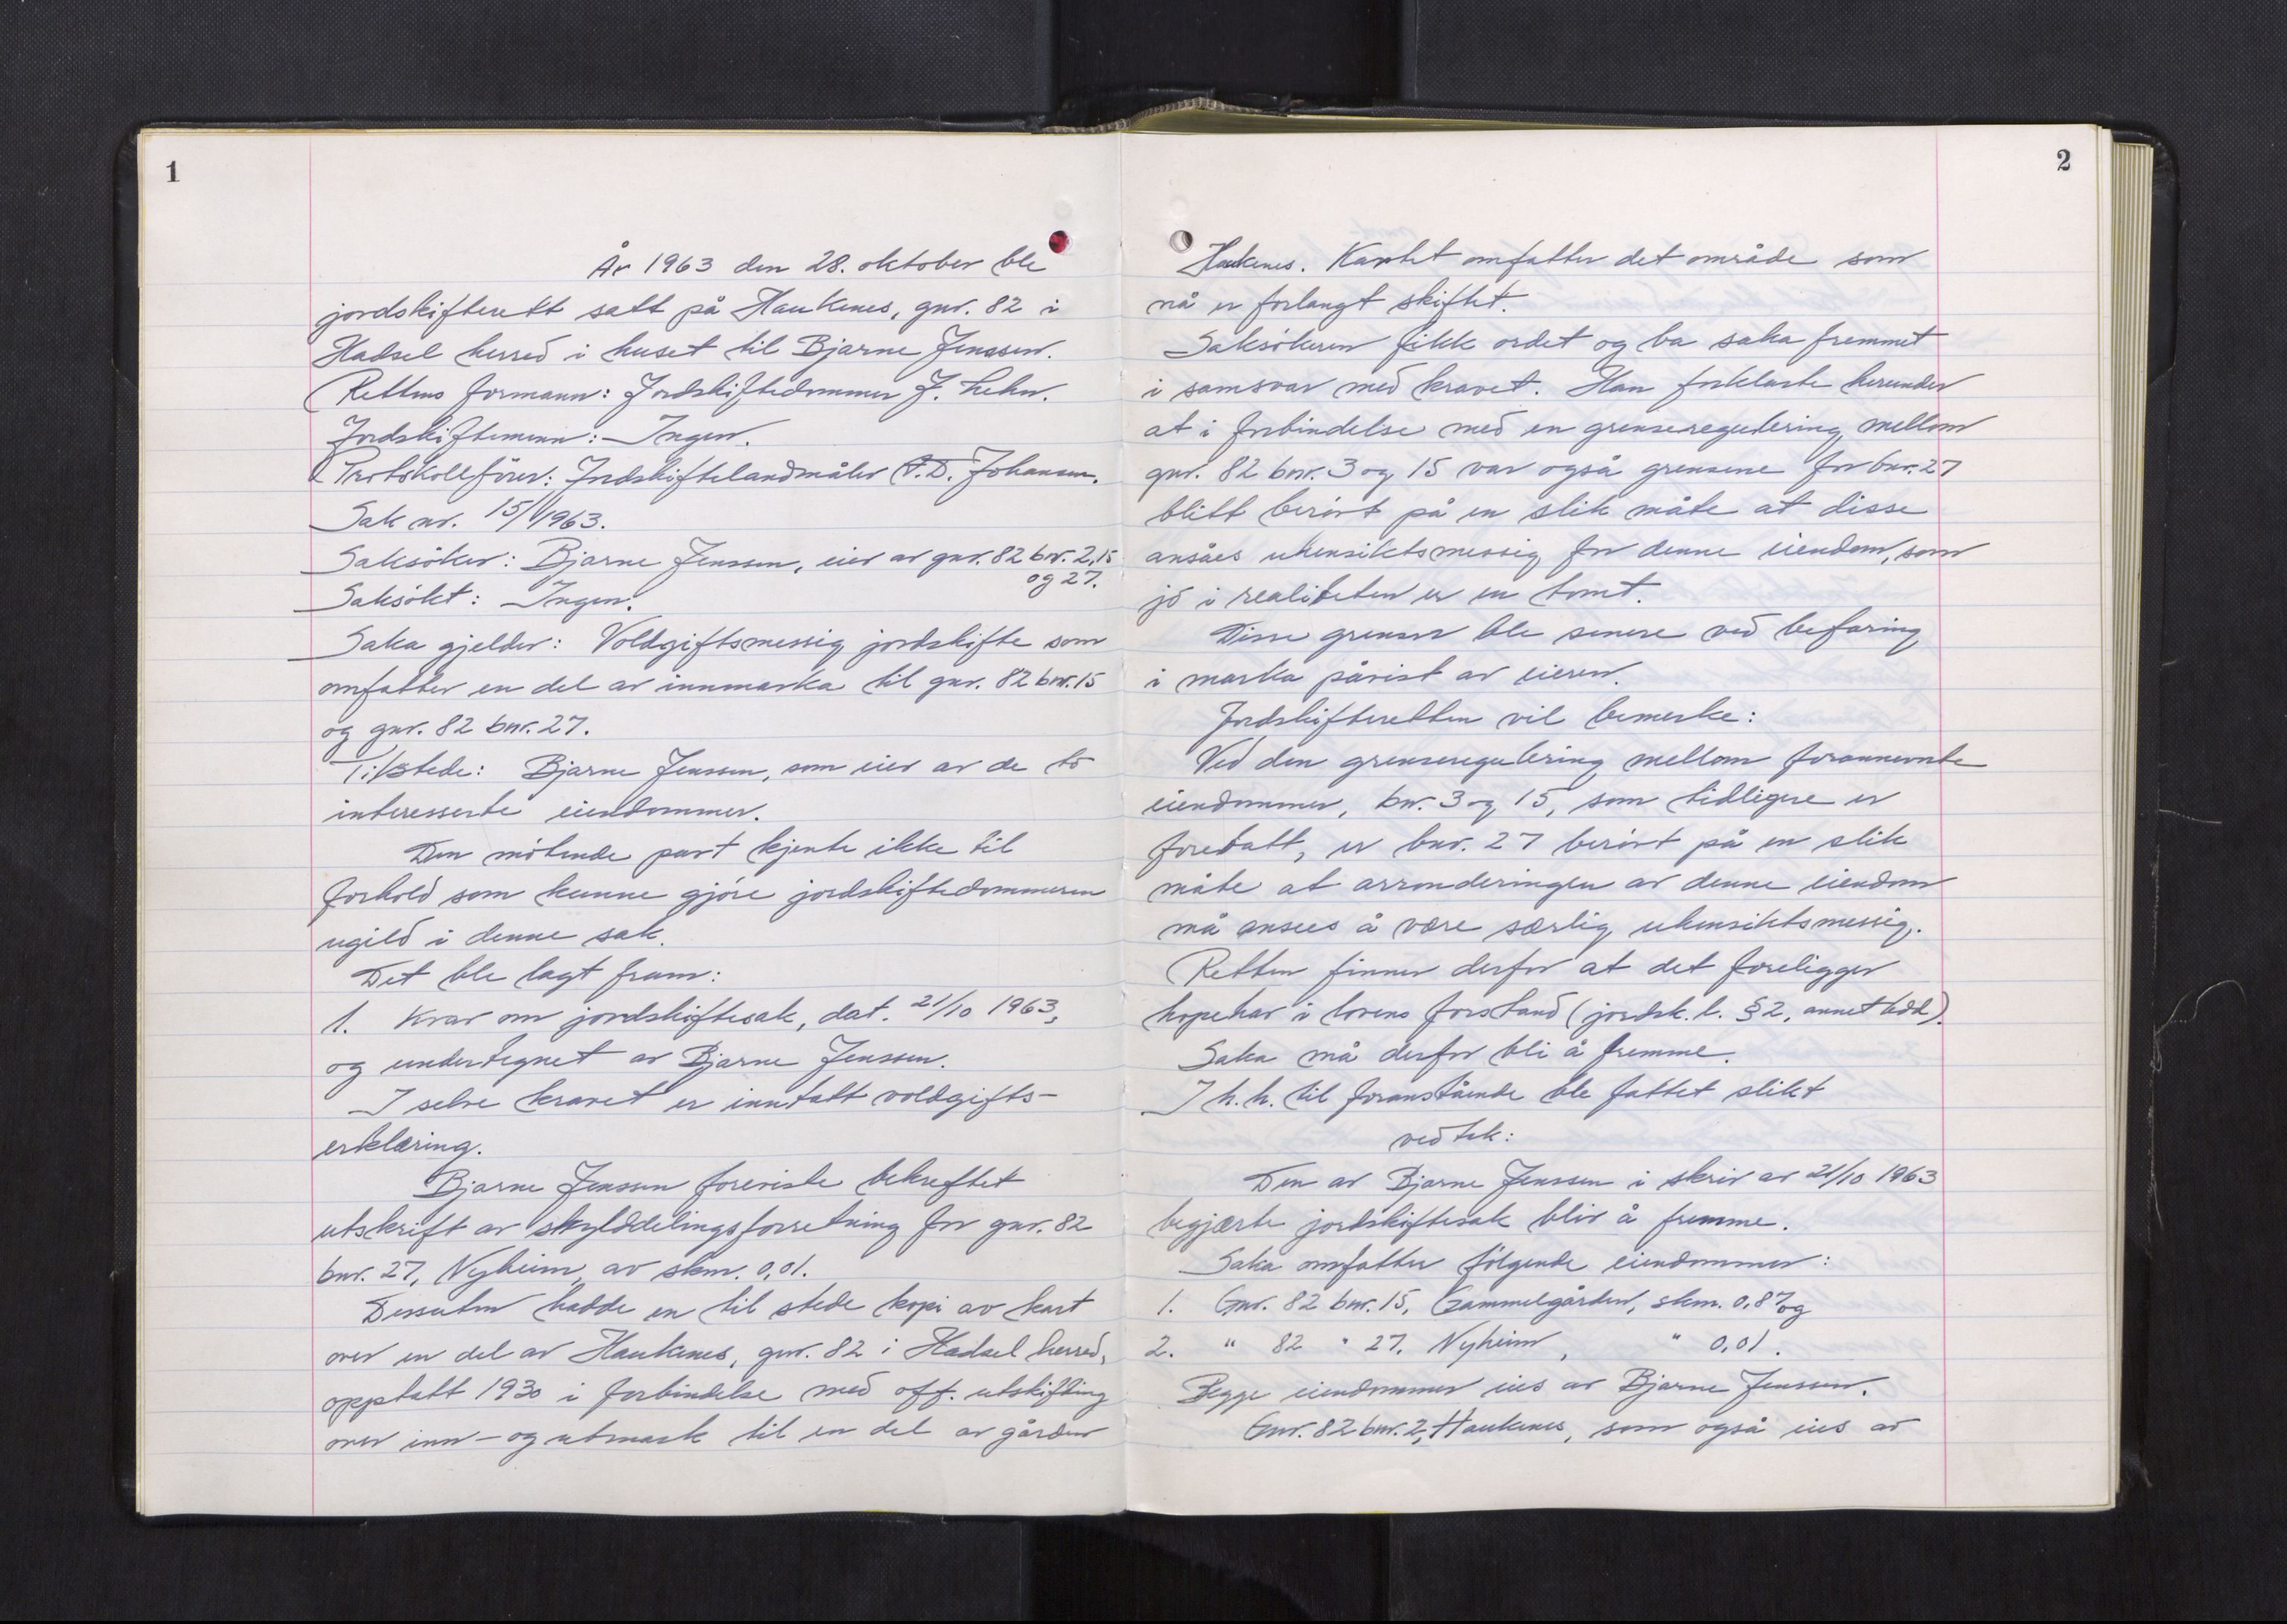 1
År 1963 den 28. oktober ble
jordskifterett satt på Haukenes, gnr. 82 i
Hadsel herred i huset til Bjarne Jenssen.
Rettens formann: Jordskiftedommer J. Lehn.
Jordskiftemenn: Ingen.
Protokollfører: Jordskiftelandmåler P.D. Johansen.
Sak nr. 15/1963.
Saksöker: Bjarne Jenssen, eier av gnr. 82 bnr. 2, 15
og 27.
Saksökt: Ingen.
Saka gjelder: Voldgiftsmessig jordskifte som
omfatter en del av innmarka til gnr. 82 bnr. 15
og gnr. 82 bnr. 27.
Tilstede: Bjarne Jenssen, som eier av de to
interesserte eiendommer.
Den mötende part kjente ikke til
forhold som kunne gjöre jordskiftedommeren
ugild i denne sak.
Det ble lagt fram:
1. Krav om jordskiftesak, dat. 21/10 1963,
og undertegnet av Bjarne Jenssen.
I selve kravet er inntatt voldgifts-
erklæring.
Bjarne Jenssen foreviste bekreftet
utskrift av skylddelingsforretning for gnr. 82
bnr. 27, Nyheim, av skm. 0,01.
Dessuten hadde en til stede kopi av kart
over en del av Haukenes, gnr. 82 i Hadsel herred,
opptatt 1930 i forbindelse med off. utskifting
over inn- og utmark til en del av gården
2
Haukenes. Kartet omfatter det område som
nå er forlangt skiftet.
Saksökeren fikk ordet og ba saka fremmet
i samsvar med kravet. Han forklarte herunder
at i forbindelse med en grenseregulering mellom
gnr. 82 bnr. 3 og 15 var også grensene for bnr. 27
blitt berört på en slik måte at disse
ansåes uhensiktsmessig for denne eiendom, som
jo i realiteten er en tomt.
Disse grenser ble senere ved befaring
i marka påvist av eieren.
Jordskifteretten vil bemerke:
Ved den grenseregulering mellom forannevnte
eiendommer, bnr. 3 og 15, som tidligere er
foretatt, er bnr. 27 berört på en slik
måte at arronderingen av denne eiendom
må ansees å være særlig uhensiktsmessig.
Retten finner derfor at det foreligger
hopehav i lovens forstand (jordsk. l. § 2, annet ledd).
Saka må derfor bli å fremme.
I h. h. til foranstående ble fattet slikt
vedtak:
Den av Bjarne Jenssen i skriv av 21/10 1963
begjærte jordskiftesak blir å fremme.
Saka omfatter fölgende eiendommer:
1. Gnr. 82 bnr. 15, Gammelgården, skm. 0,87 og
2. " 82 " 27, Nyheim, " 0,01.
Begge eiendommer eies av Bjarne Jenssen.
Gnr. 82 bnr. 2, Haukenes, som også eies av